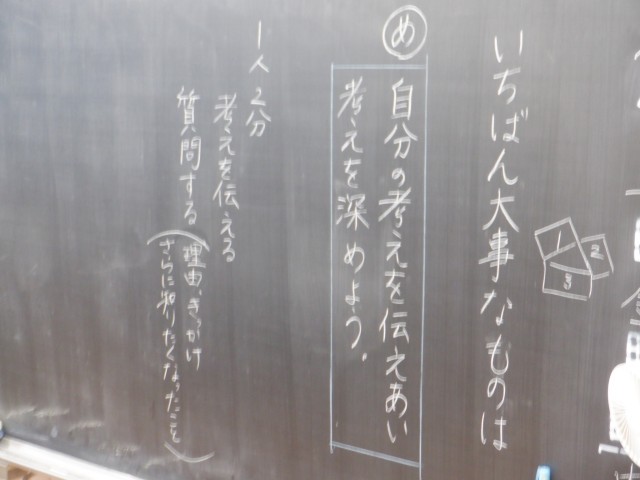 いちばん大事なものは
1
2
3
め
自分の考えを伝えあい
考えを深めよう。
1人2分
考えを伝える
質問する
(理由、きっかけ
さらに知りたくなったこと)